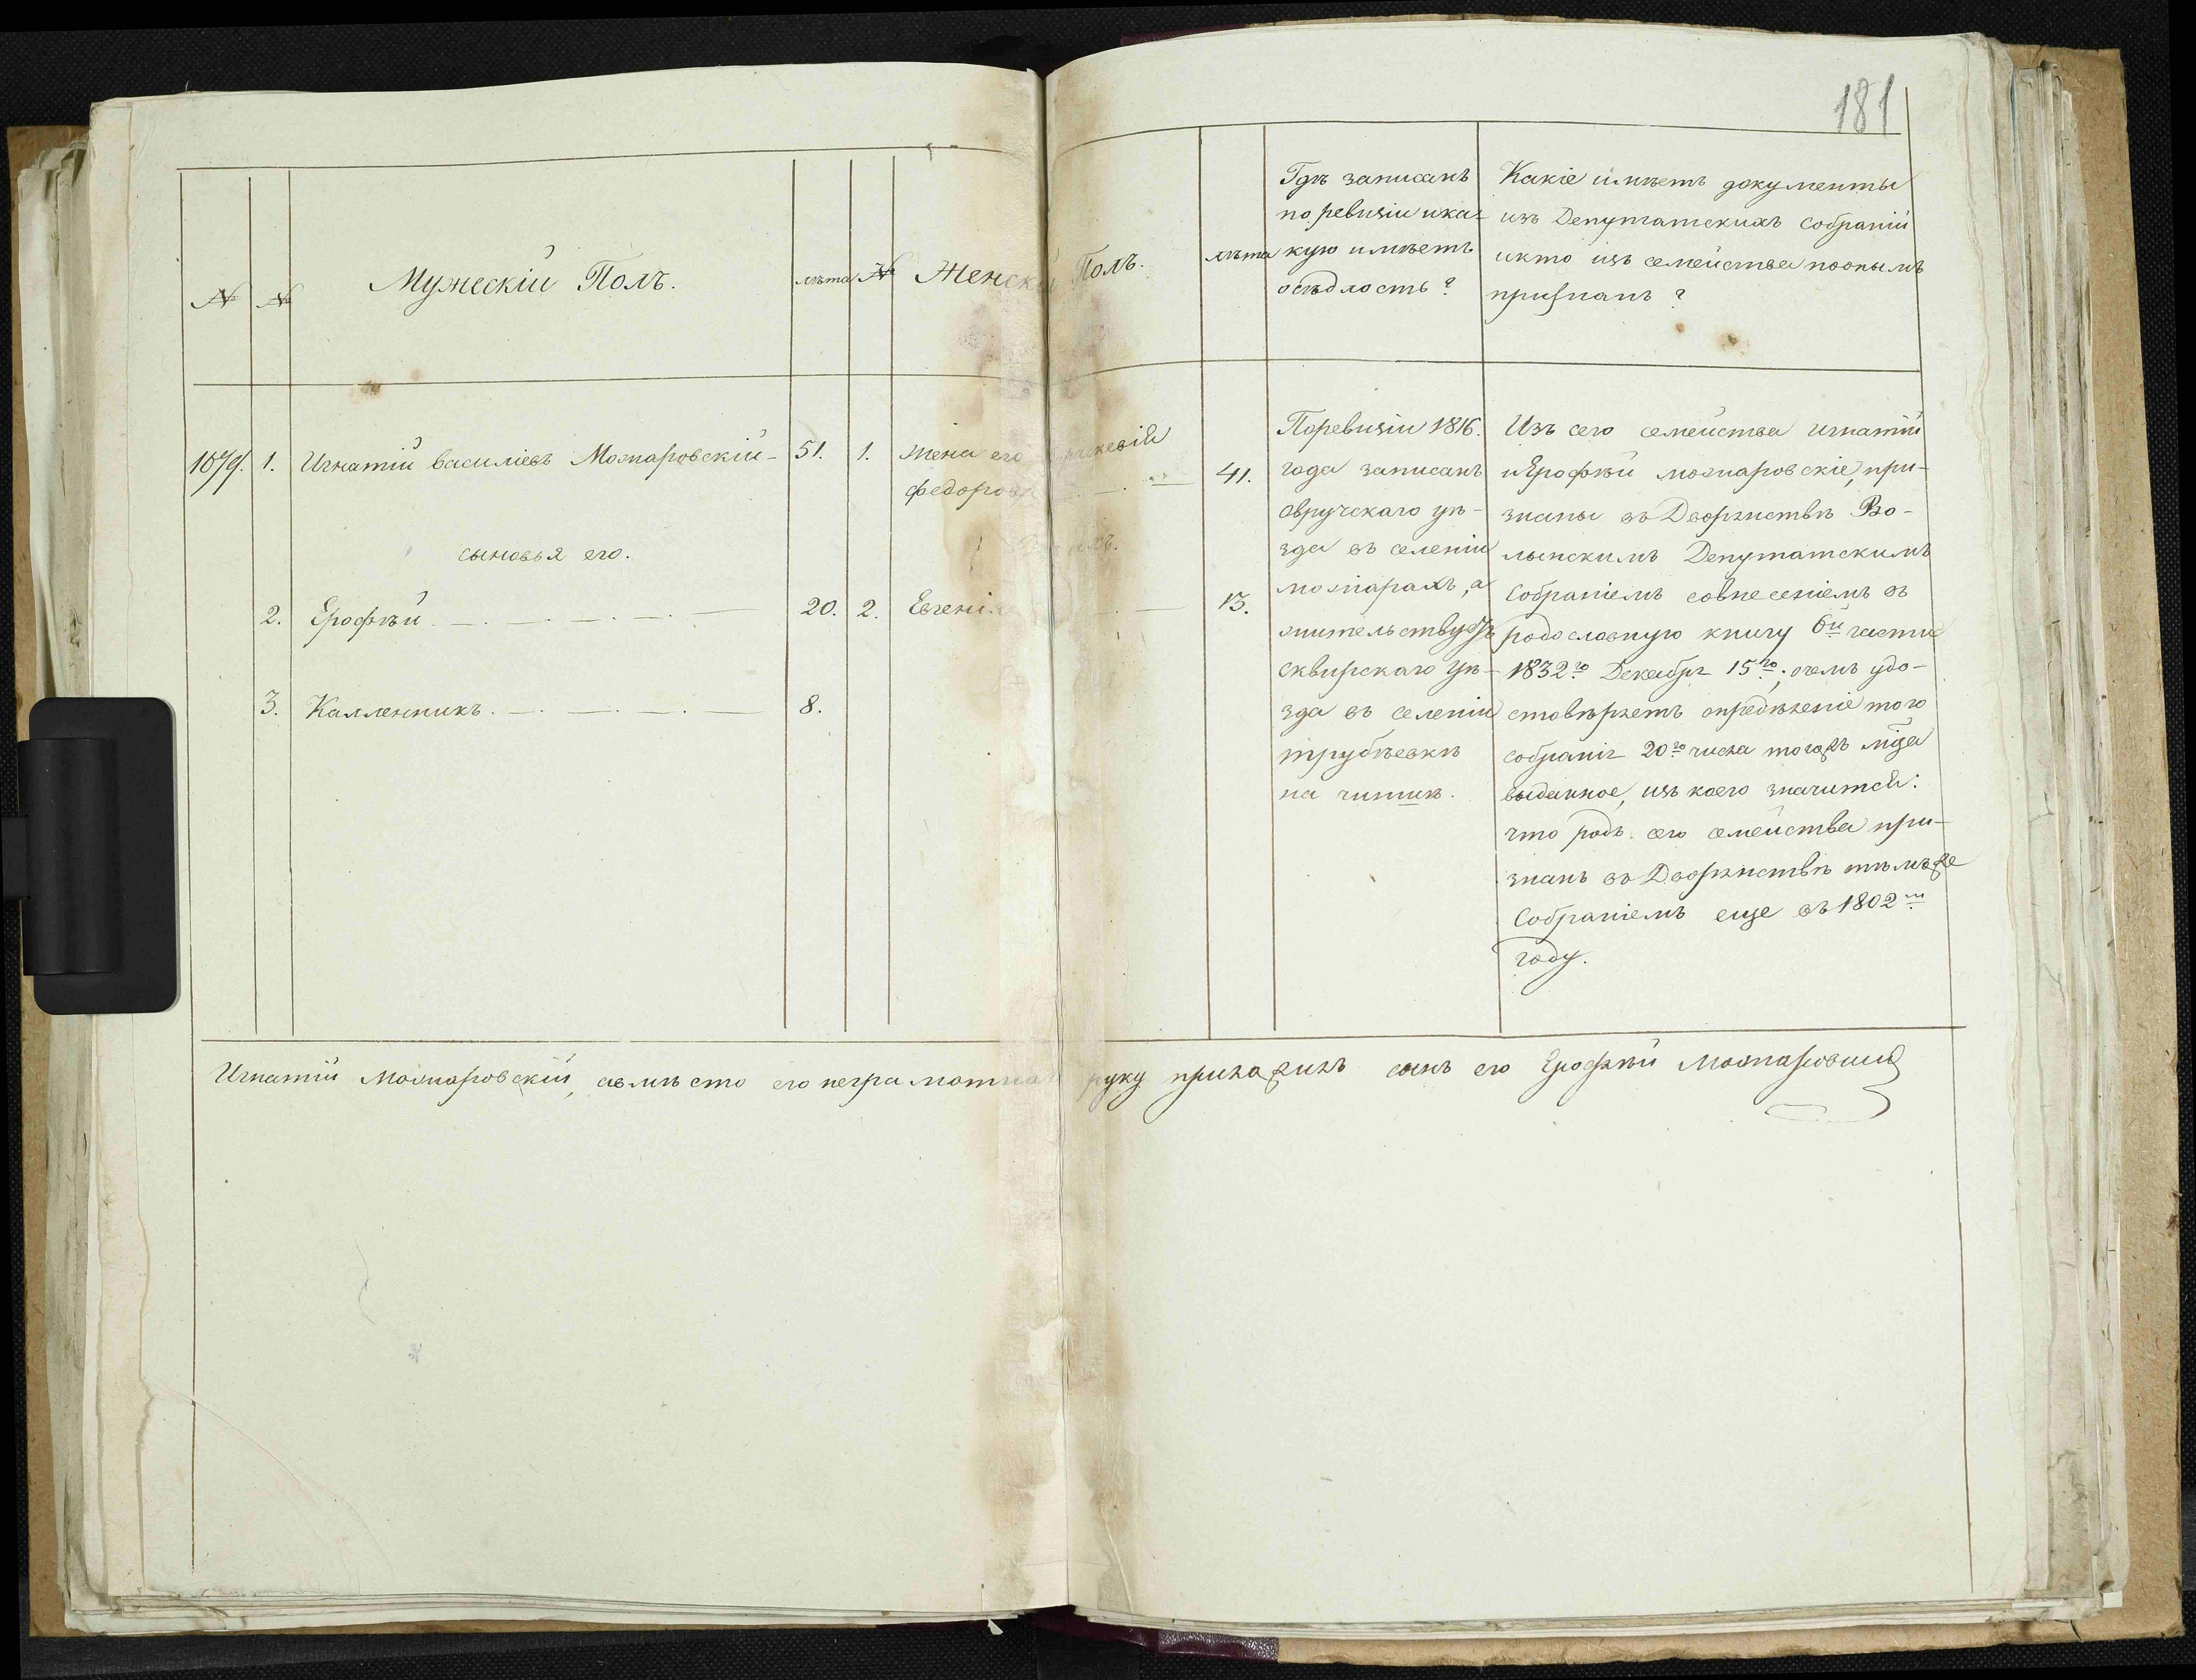 181
№
№
Мужескій Полъ.
лѣта
№
Женскій Полъ.
лѣта
Гдѣ записанъ
по ревизіи ика-
кую имѣетъ
осѣдлость?
Какіе имѣетъ документы
изъ Депутатскихъ Собраній
икто изъ семейства пооным
признанъ?
1079. 1. Игнатій василіевъ Можаровскій - 51.
сыновья его.
2. Ерофѣй 20.
3. Калленникъ. 8.
1. жена его
федоров 41.
2. Евгенія 13.
Поревизіи 1816.
года записанъ
овручскаго уѣ-
зда въ селеніи
можарахъ, а
жительствуетъ
сквирскаго Уѣ-
зда въ селеніи
трубѣевкѣ
на чиншѣ.
Изъ сего семейства игнатій
иЕрофѣй можаровскіе, при-
знаны въ Дворянствѣ Во-
лынскимъ Депутатскимъ
Собраніемъ совнесеніемъ въ
родословную книгу 6й части
1832го Декабря 15го; очемъ удо-
стовѣряетъ опредѣленіе того
собранія 20го числа тогожъ мца
выданное, изъ коего значится:
что родъ сего семейства при-
знанъ въ Дворянствѣ тѣмъже
Собраніемъ еще въ 1802м
году.
Игнатій Можаровскій, авмѣсто его неграмотнаго руку приложилъ сынъ его Ерофѣй Можаровскій